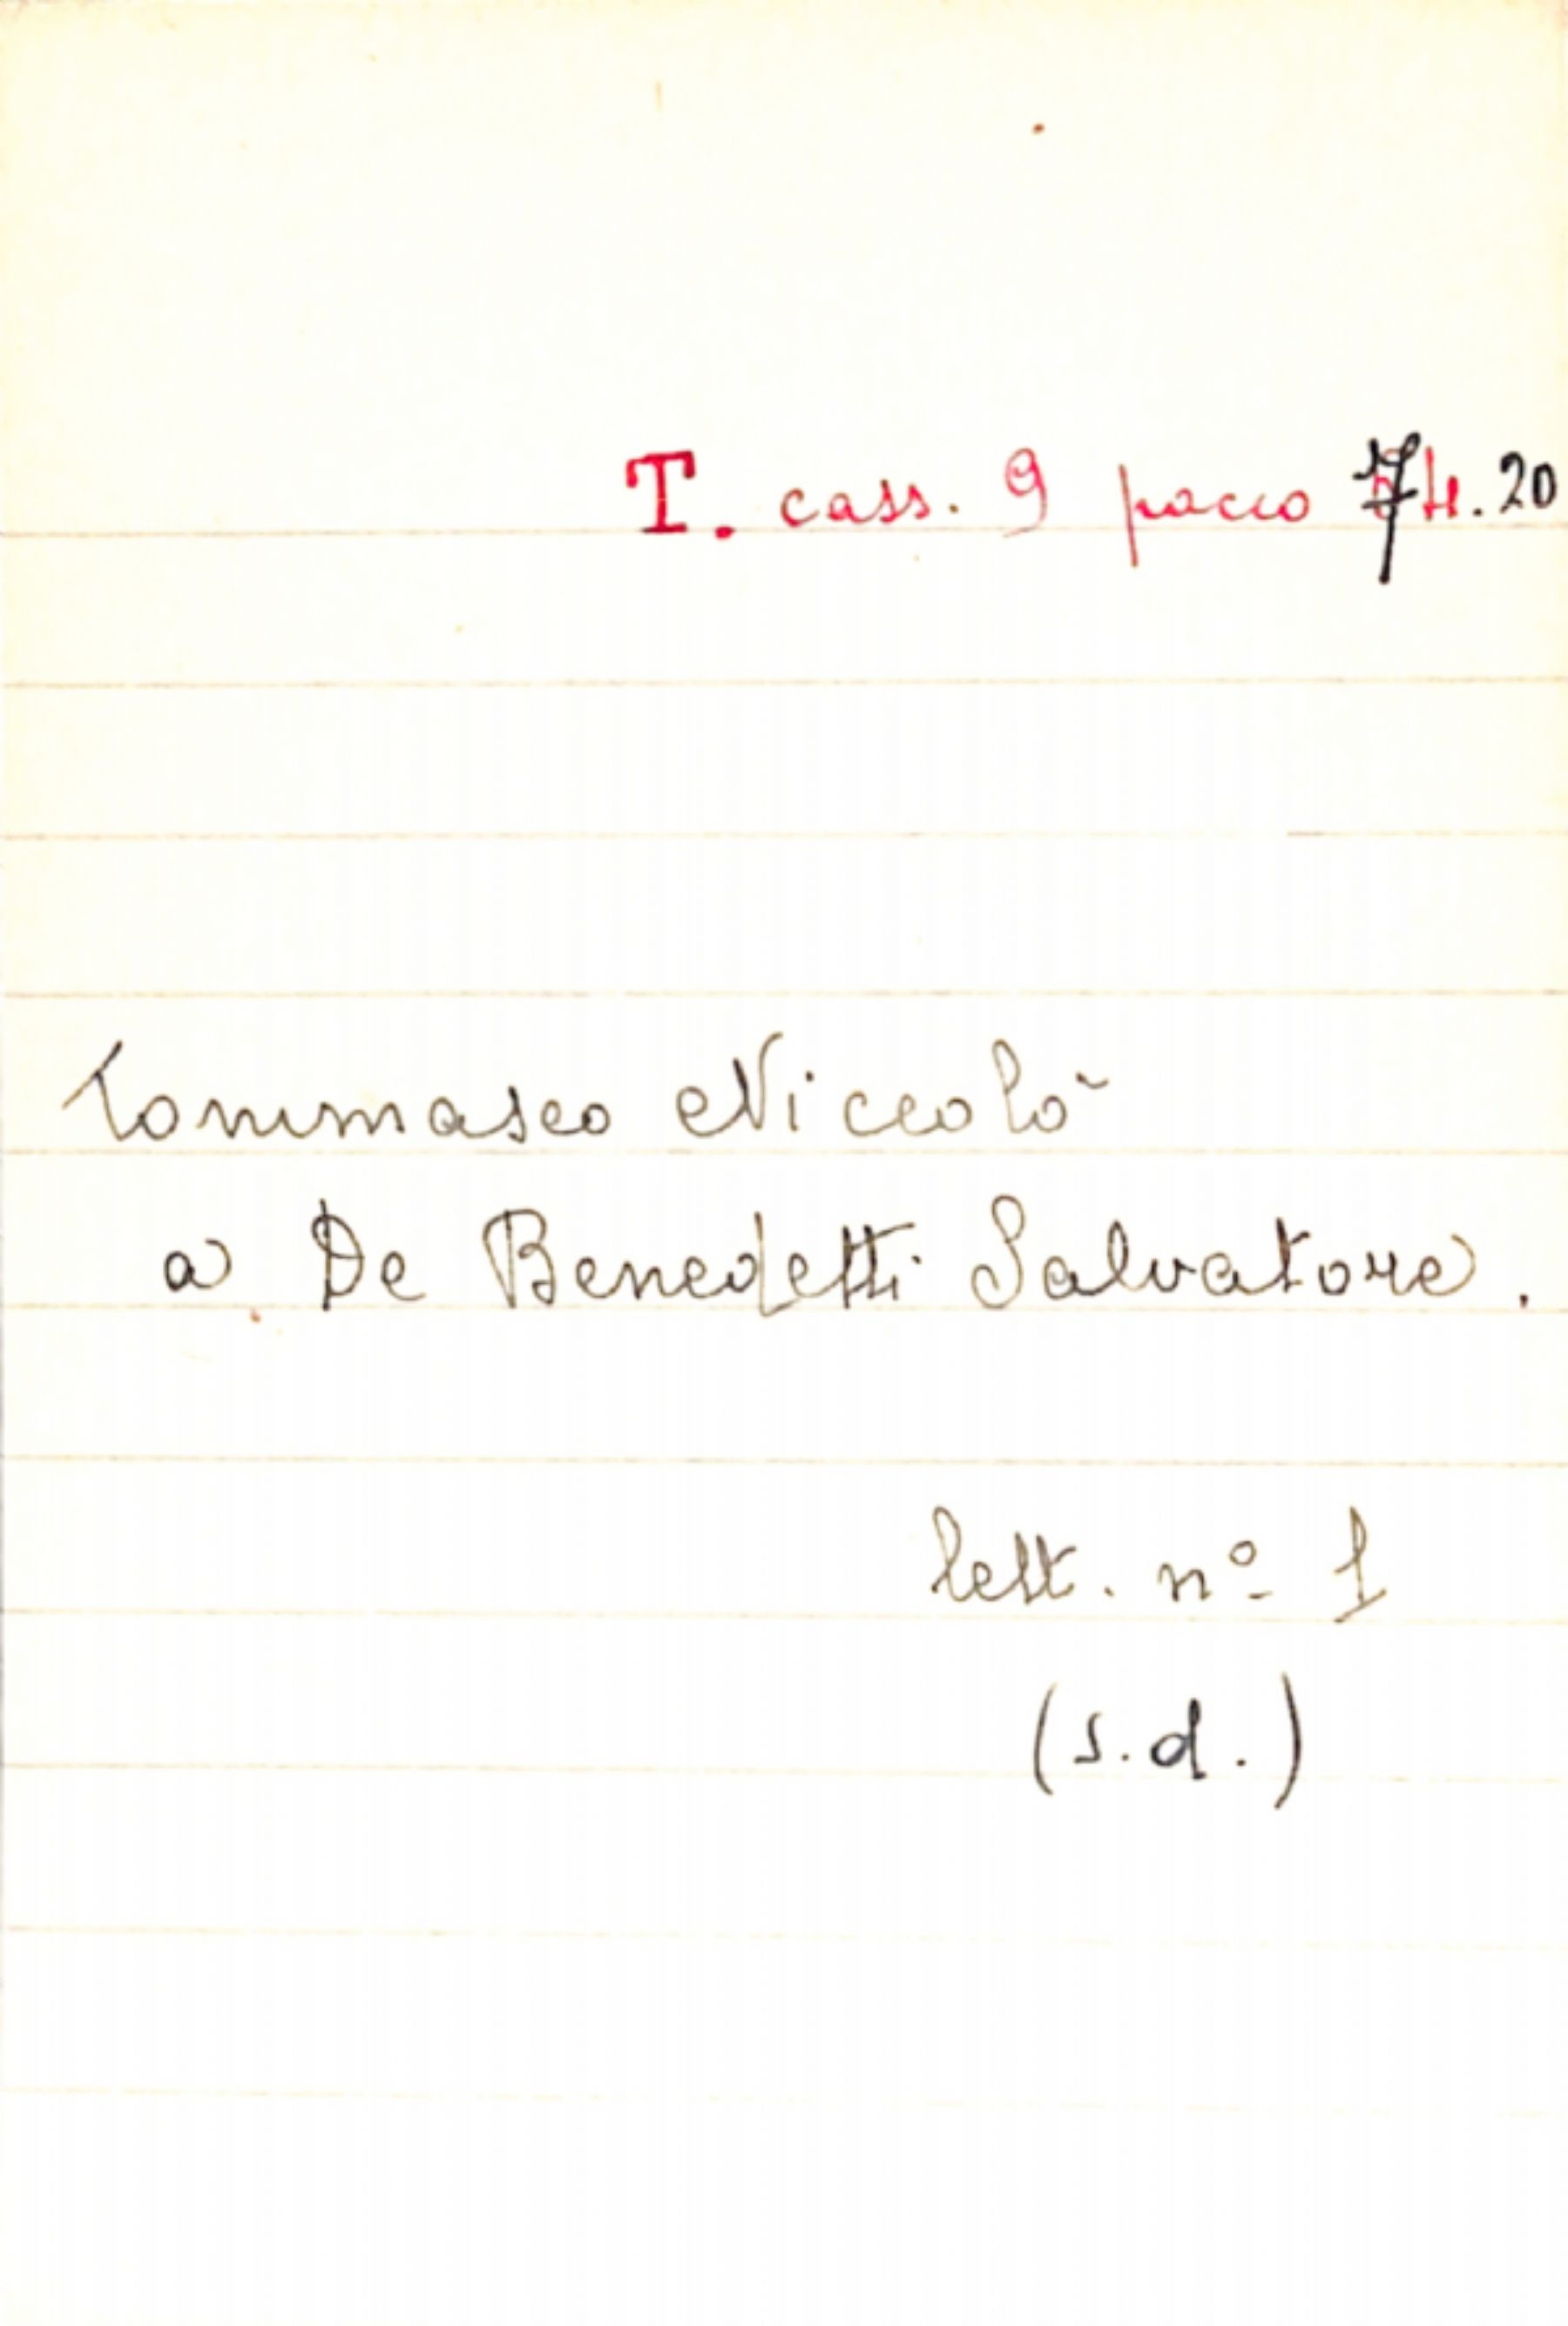 T. cass. 9 pacco 74.20
Tommaseo Niccolò
a De Benedetti Salvatore.
lett. nº 1
(s.d.)